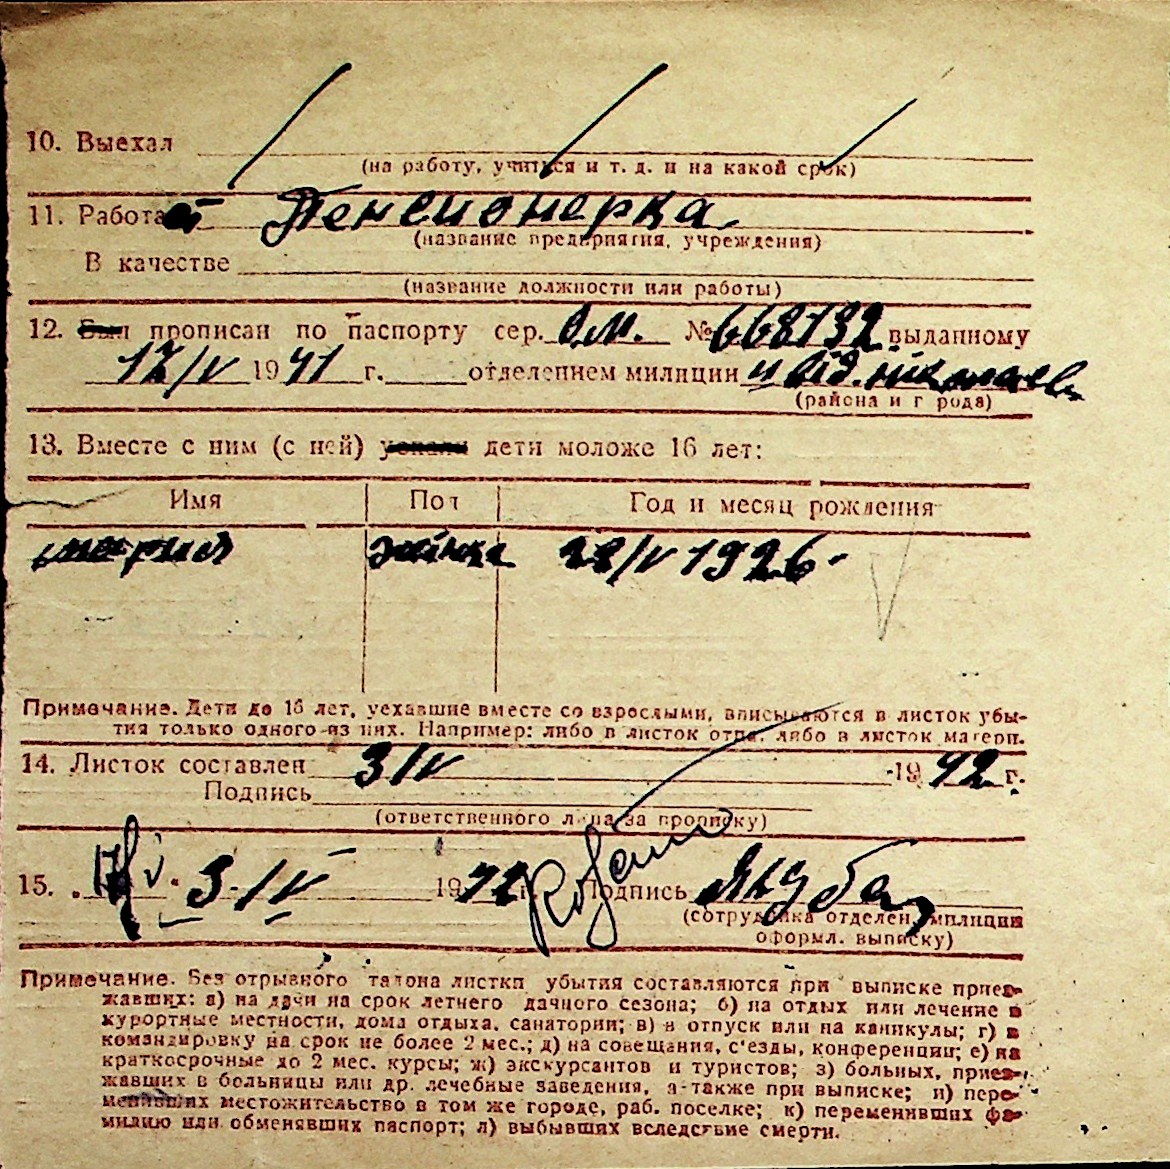 10. Выехал
(на работу, учиться и т. д. и на какой срок)
11. Работает Пенсионерка
(название предприятия, учреждения)
В качестве
(название должности или работы)
12. Был прописан по паспорту сер. О.М. № 668732 выданному
17/IV 1941 г. отделением милиции
(района и города)
13. Вместе с ним (с ней) уехали дети моложе 16 лет:
Имя Пол Год и месяц рождения
28/IV 1926
Примечание. Дети до 16 лет, уехавшие вместе со взрослыми, вписываются в листок убы-
тия только одного из них. Например: либо в листок отца, либо в листок матери.
14. Листок составлен 3/IV 1942 г.
Подпись
(ответственного лица за прописку)
15. 3-IV 1942 г. Подпись
(сотрудника отделен. милиции
оформл. выписку)
Примечание. Без отрывного талона листки убытия составляются при выписке приез-
жавших: а) на дачи на срок летнего дачного сезона; б) на отдых или лечение в
курортные местности, дома отдыха, санатории; в) в отпуск или на каникулы; г) в
командировку на срок не более 2 мес.; д) на совещания, с'езды, конференции; е) на
краткосрочные до 2 мес. курсы; ж) экскурсантов и туристов; з) больных, приез-
жавших в больницы или др. лечебные заведения, а также при выписке; и) пере-
менивших местожительство в том же городе, раб. поселке; к) переменивших фа-
милию или обменявших паспорт; л) выбывших вследствие смерти.